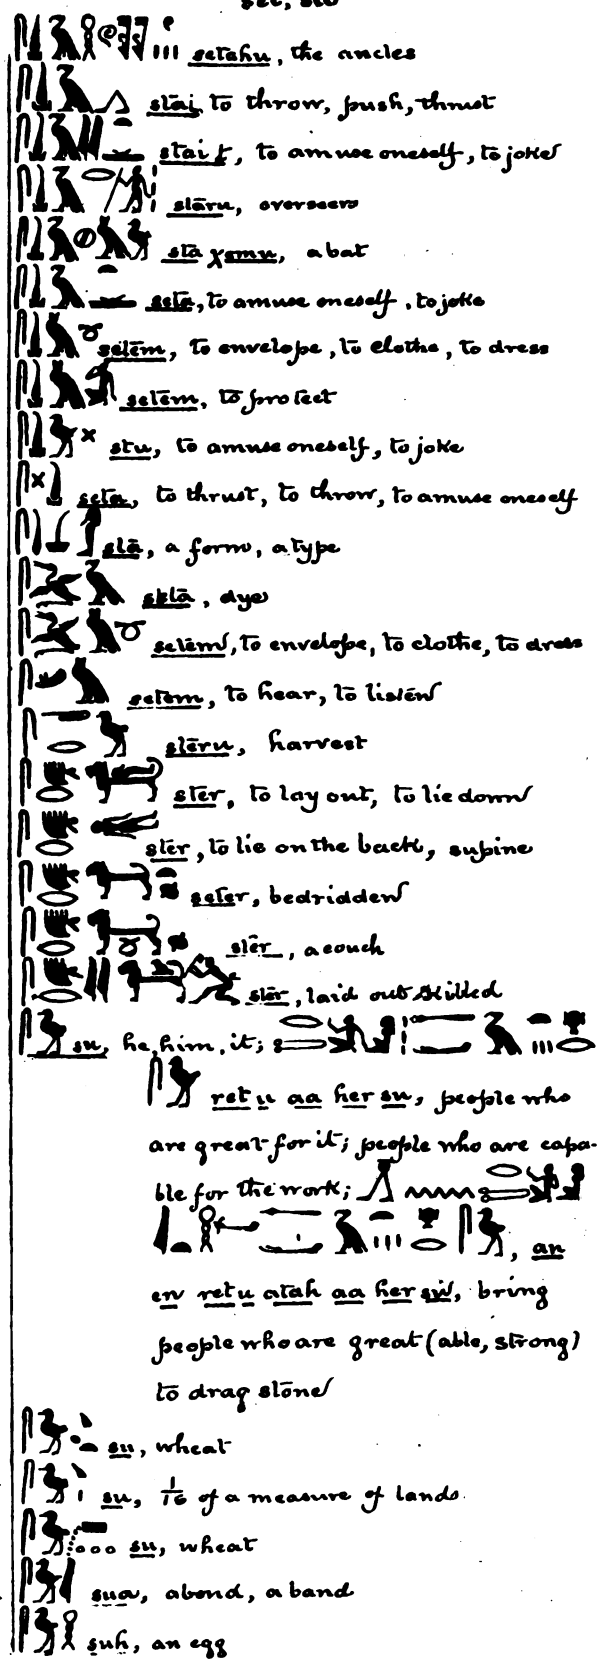 set, sto
setahu, the ancles
stai, to throw, push, thrust
stait, to amuse oneself, to joke
staru, overseers
sta χemu, a bat
seta, to amuse oneself, to joke
setem, to envelope, to clothe, to dress
setem, to protect
stu, to amuse oneself, to joke
seta, to thrust, to throw, to amuse oneself
stā, a form, a type
dye
setem, to envelope, to clothe, to dress
setem, to hear, to listen
steru, harvest
ster, to lay out, to lie down
ster, to lie on the back, supine
seter, bedridden
ster, a couch
ster, laid out killed
su, he, him, it;
ret u aa her su, people who
are great for it; people who are capa-
ble for the work;
, an
en retu atah aa her su, bring
people who are great (able, strong)
to drag stone
su, wheat
su, 1/16 of a measure of lands.
su, wheat
sua, abond, a band
suh, an egg